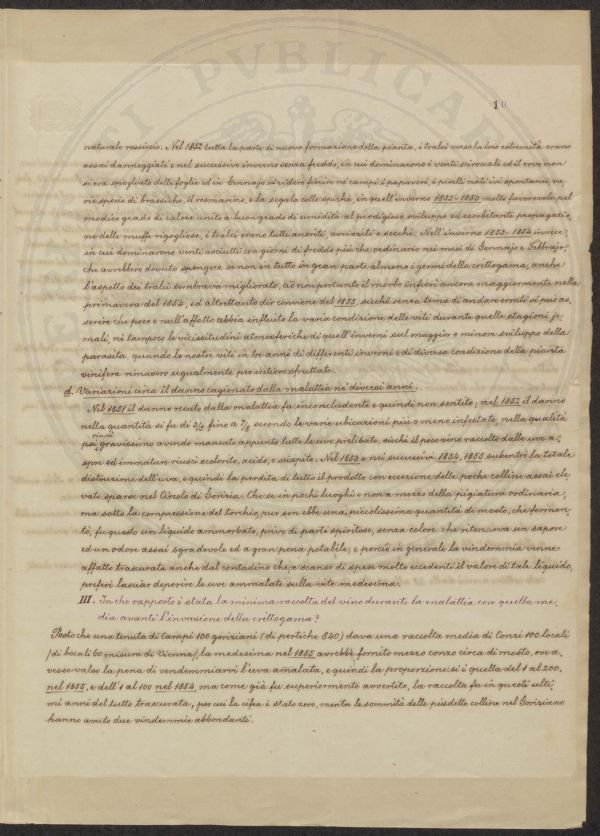 10
naturale rossiccio. Nel 1852 tutta la parte di nuova formazione della pianta, i tralci verso la loro estremità erano
assai danneggiati e nel successivo inverno senza freddo, in cui dominarono i venti sciroccali ed il rove non
si era spogliato delle foglie ed in Gennajo si videro fiorir ne campi i papaveri, i piselli nati ivi spontanei, va
rie specie di brassiche, il rosmarino, e la segala colle spiche, in quell'inverno 1852-1853 molto favorevole pel
modico grado di calore unito a buon grado di umidità al prodigioso sviluppo ed esorbitante propagazio,
ne delle muffe rigogliose, i tralci erano tutti anneriti, avvizziti e secchi. Nell'inverno 1853-1854 invece,
in cui dominarono venti asciutti con giorni di freddo più che ordinario nei mesi di Gennajo e Febbrajo,
che avrebbero dovuto spengere se non in tutto in gran parte almeno i germi della crittogama, anche
l'aspetto dei tralci sembrava migliorato, ciò non pertanto il morbo infierì ancora maggiormente nella
primavera del 1854, ed altrettanto dir conviene del 1855, sicchè senza tema di andare errati si può as,
serire che poco o null'affatto abbia influito la varia condizione delle viti durante quelle stagioni je,
mali, nè tampoco le vicissitudini atmosferiche di quell'inverni sul maggior o minore sviluppo della
parasita, quando le nostre viti in tre anni di differenti inverni e di diversa condizione della pianta
vinifera rimasero ugualmente per intiero sfruttate.
d. Variazioni circa il danno cagionato dalla malattia ne' diversi anni.
Nel 1851 il danno recato dalla malattia fu inconcludente e quindi non sentito, nel 1852 il danno
nella quantità si fu di 2/3 fino a 7/8 secondo le varie ubicazioni più o meno infestate, nella qualità
poi gravissimo avendo mancato appunto tutte le uve prelibate, sicchè il poco vino raccolto dalle uve a,
spre ed immature riuscì scolorito, acido, e sciapito. Nel 1853 e nei successivi 1854, 1855 subentrò la totale
distruzione dell'uva, e quindi la perdita di tutto il prodotto con eccezione delle poche colline assai ele
vate sparse nel Circolo di Gorizia. Che se in pochi luoghi e non a mezzo della pigiatura ordinaria,
ma sotto la compressione del torchio, pur sen ebbe una piccolissima quantità di mosto, che fermen,
tò, fu questo un liquido ammorbato, privo di parti spiritose, senza colore che riteneva un sapore
ed un odore assai sgradevole ed a gran pena potabile; e perciò in generale la vindemmia venne
affatto trascurata anche dal contadino che, a scanso di spese molto eccedenti il valore di tale liquido,
preferì lasciar deperire le uve ammalate sulla vite medesima.
III. In che rapporto è stata la minima raccolta del vino durante la malattia con quella me,
dia avanti l'invasione della crittogama?
Posto che una tenuta di Campi 100 goriziani (di pertiche 540) dava una raccolta media di Conzi 100 locali
/di bocali 60 misura di Vienna/, la medesima nel 1855 avrebbe fornito mezzo conzo circa di mosto, ove a,
vesse valso la pena di vendemmiarvi l'uva amalata, e quindi la proporzione si è quella del 1 al 200,
nel 1855, e dell'1 al 100 nel 1854, ma come già fu superiormente avvertito, la raccolta fu in questi ulti,
mi anni del tutto trascurata, per cui la cifra è stato zero, mentre le sommità delle pudette colline nel Goriziano
hanno avuto due vindemmie abbondanti.